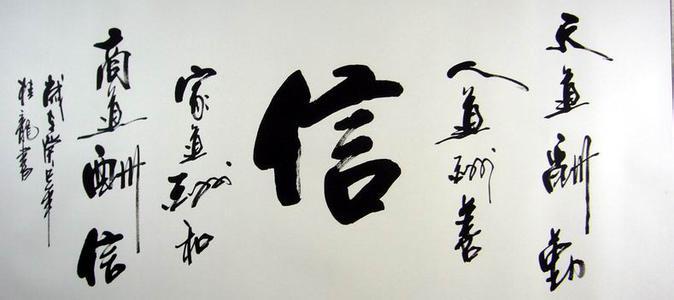 天道酬勤
人道酬善
信
家道酬和
商道酬信
癸巳年
桂龍書